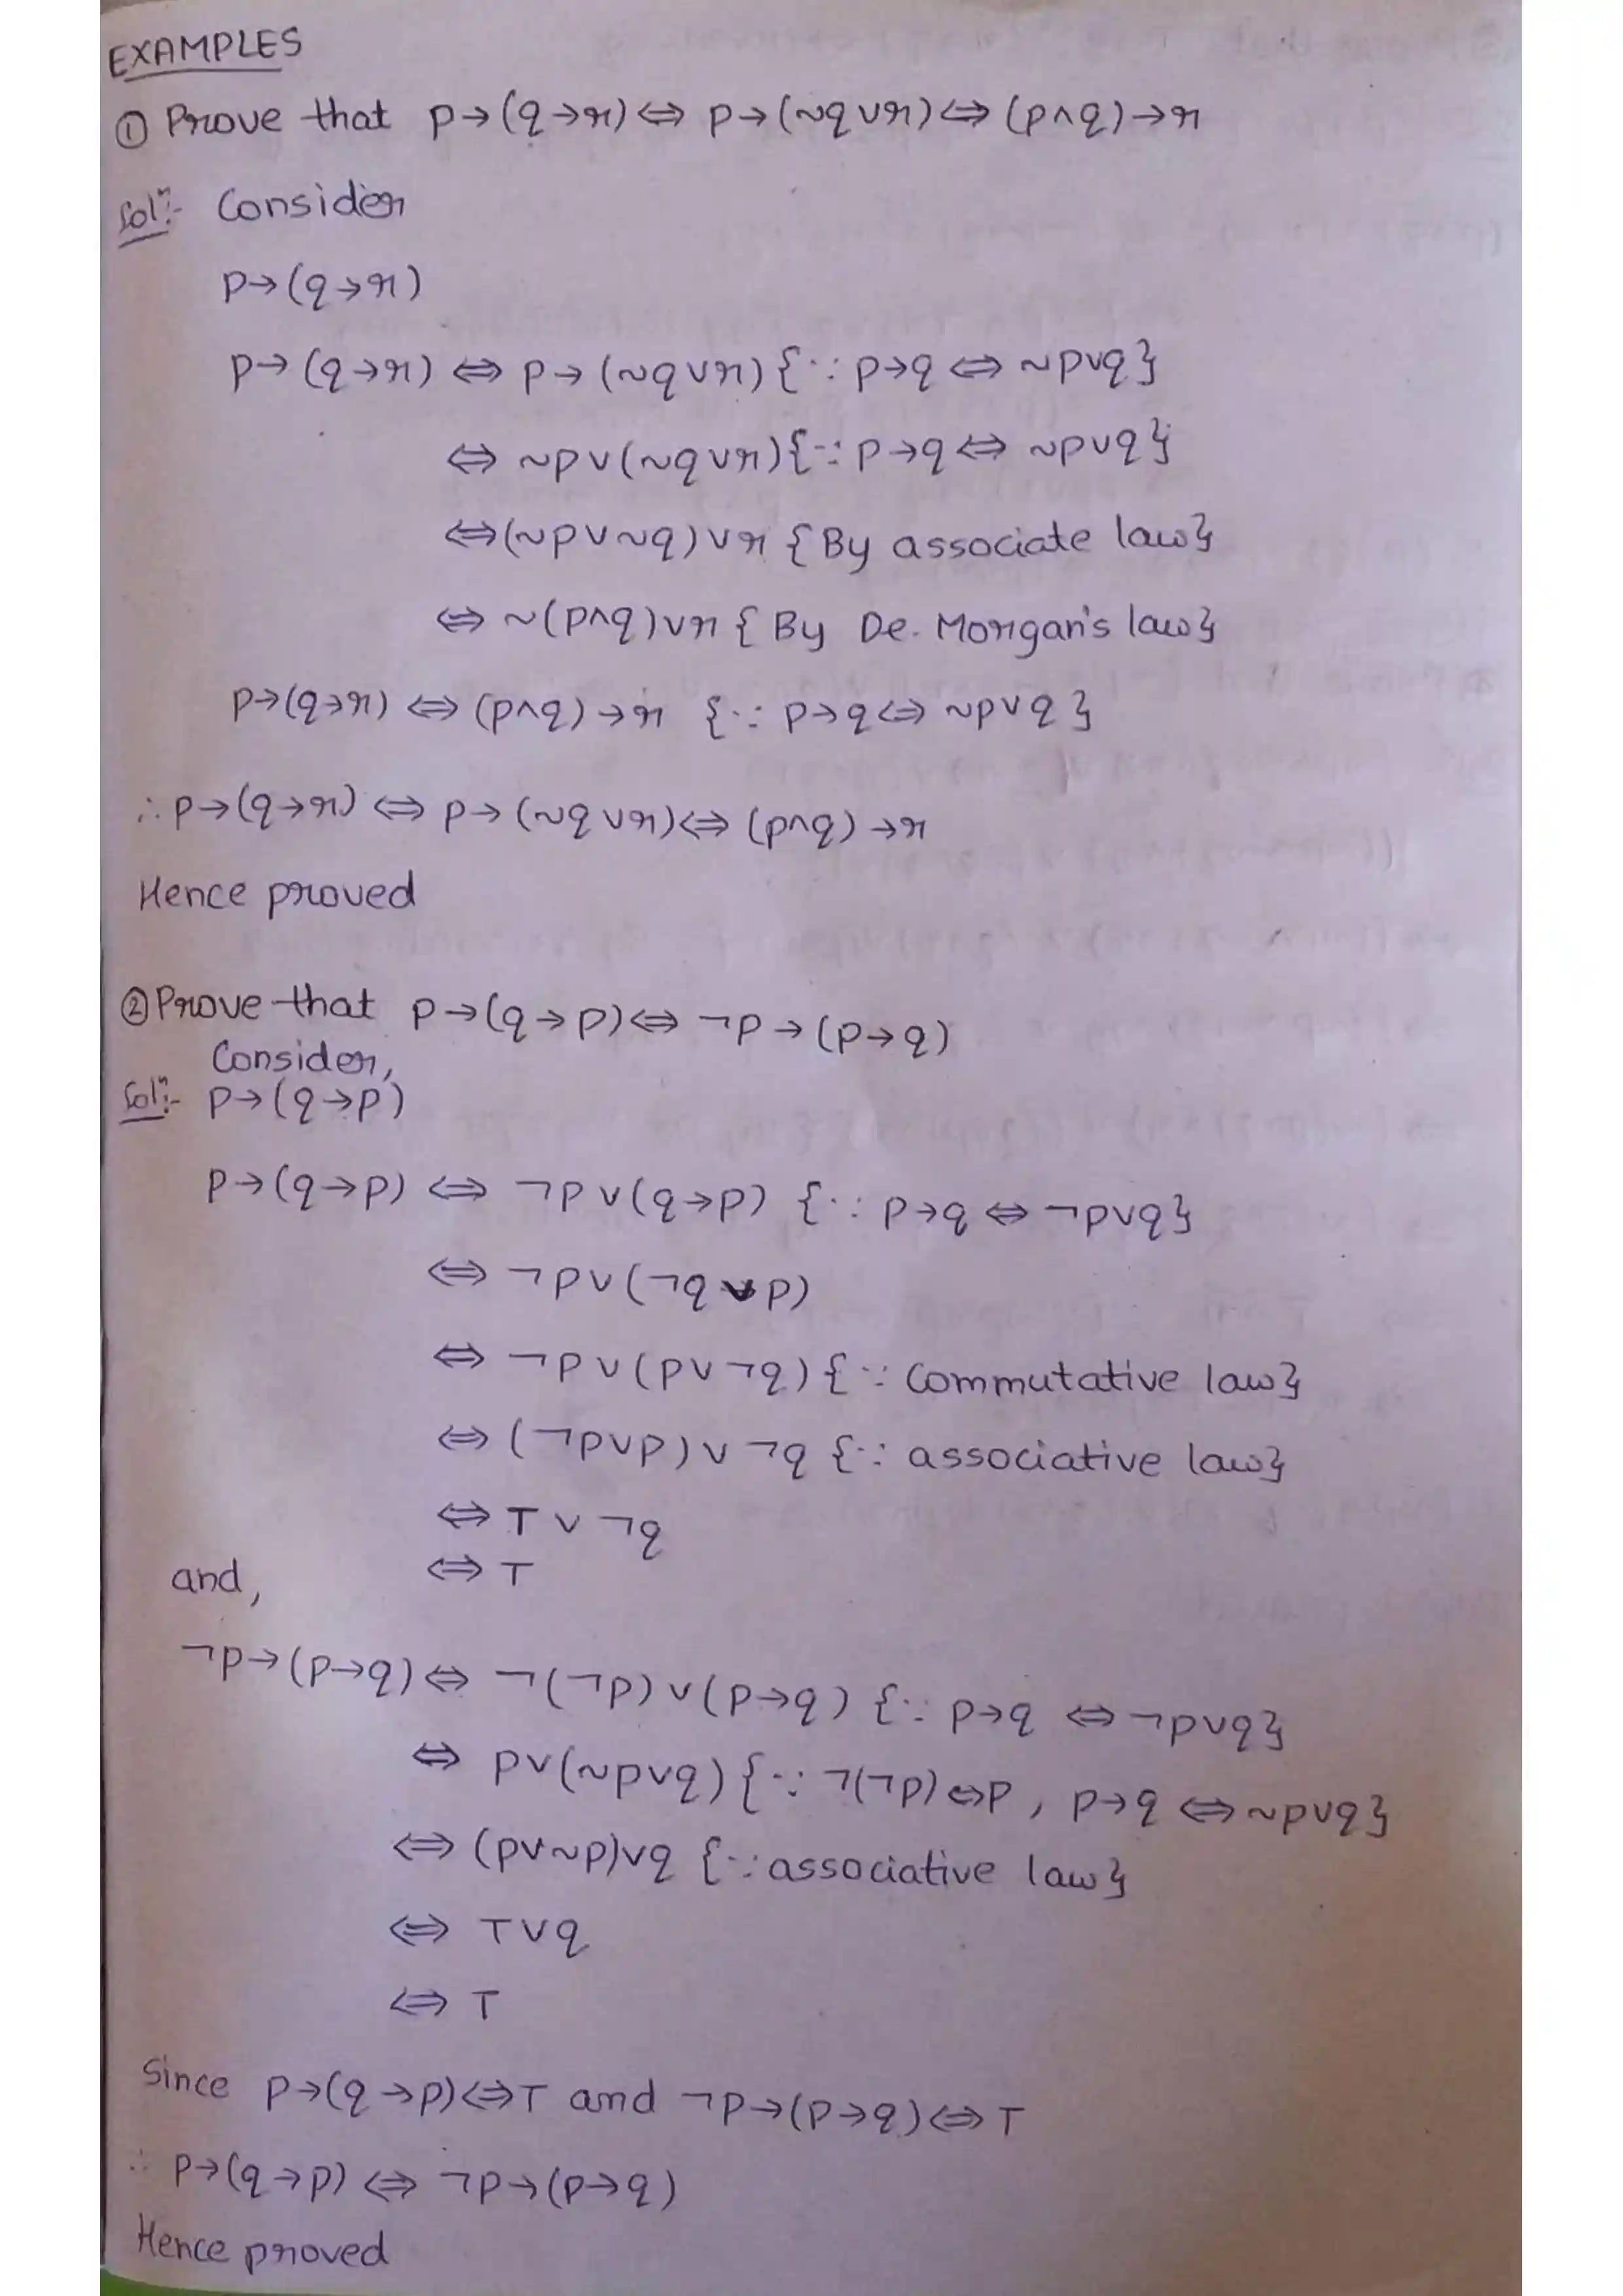 EXAMPLES
① Prove that p→(q→r)⇔ p→(~q∨r)⇔(p∧q)→r
Solⁿ:- Consider
p→(q→r)
p→(q→r) ⇔ p→(~q∨r) {∵ p→q ⇔ ~p∨q}
⇔ ~p∨(~q∨r) {∵ p→q ⇔ ~p∨q}
⇔(~p∨~q)∨r {By associate law}
⇔ ~(p∧q)∨r { By De. Morgan's law}
p→(q→r) ⇔ (p∧q)→r {∵ p→q⇔ ~p∨q}
∴ p→(q→r) ⇔ p→(~q∨r)⇔ (p∧q)→r
Hence proved
② Prove that p→(q→p)⇔ ¬p→(p→q)
Consider,
Solⁿ:- p→(q→p)
p→(q→p) ⇔ ¬p∨(q→p) {∵ p→q ⇔ ¬p∨q}
⇔ ¬p∨(¬q∨p)
⇔ ¬p∨(p∨¬q) {∵ Commutative law}
⇔ (¬p∨p)∨¬q {∵ associative law}
⇔ T∨¬q
⇔ T
and,
¬p→(p→q)⇔ ¬(¬p)∨(p→q) {∵ p→q ⇔ ¬p∨q}
⇔ p∨(~p∨q) {∵ ¬(¬p)⇔p, p→q ⇔ ~p∨q}
⇔ (p∨~p)∨q {∵ associative law}
⇔ T∨q
⇔ T
Since p→(q→p)⇔T and ¬p→(p→q)⇔T
∴ p→(q→p) ⇔ ¬p→(p→q)
Hence proved